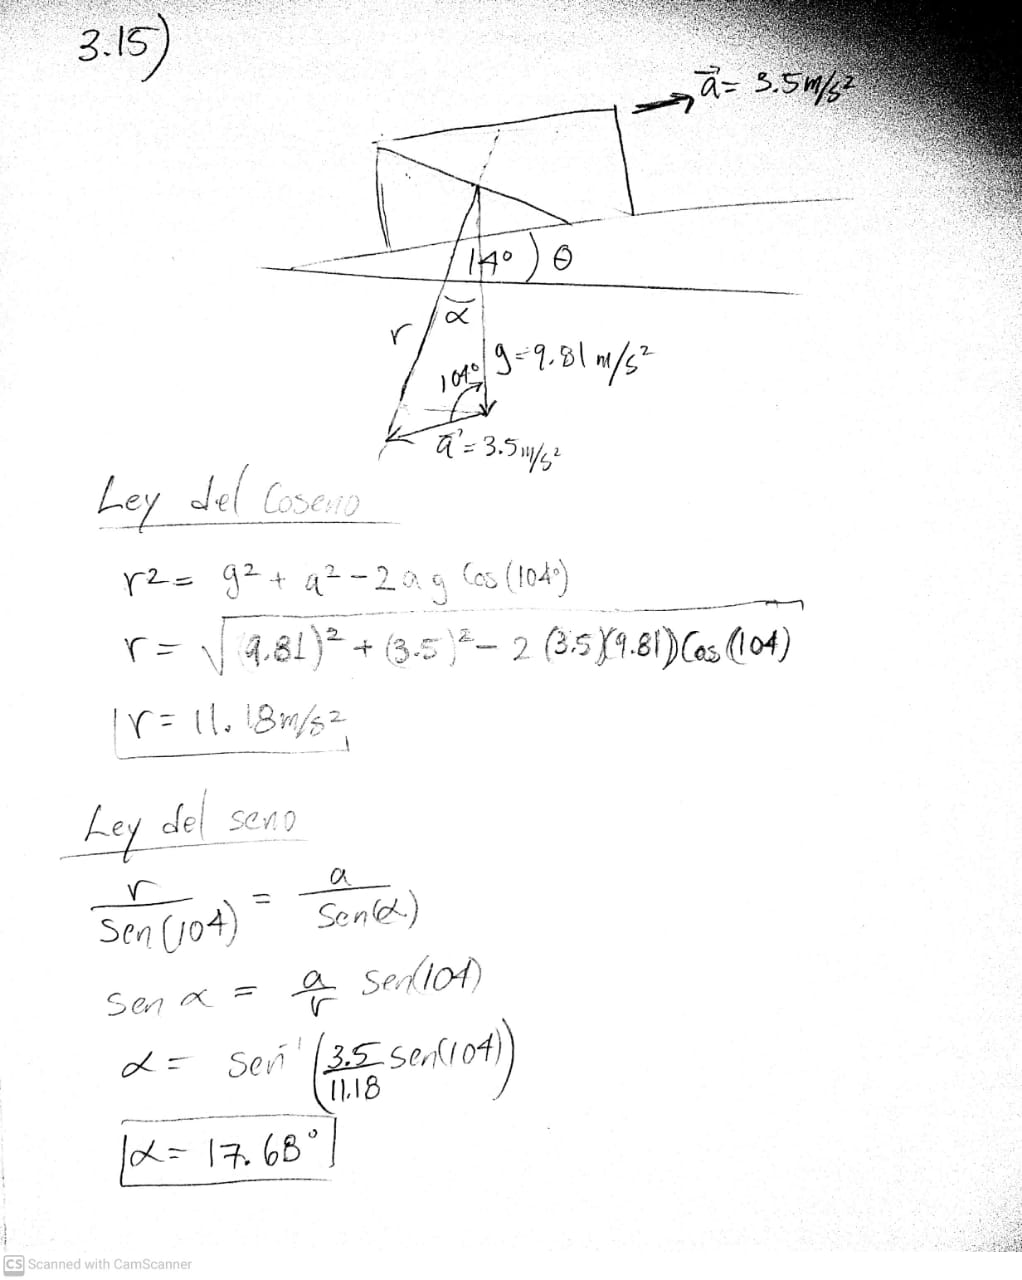 3.15)
a⃗ = 3.5 m/s²
14° ) θ
α
r
g = 9.81 m/s²
104°
a⃗' = 3.5 m/s²
Ley del Coseno
r² = g² + a² - 2 a g Cos (104°)
r = √(9.81)² + (3.5)² - 2 (3.5)(9.81)) Cos (104)
r = 11.18 m/s²
Ley del seno
r / Sen (104) = a / Sen(α)
Sen α = a/r Sen(104)
α = Sen⁻¹ (3.5/11.18 Sen(104))
α = 17.68°
CS Scanned with CamScanner